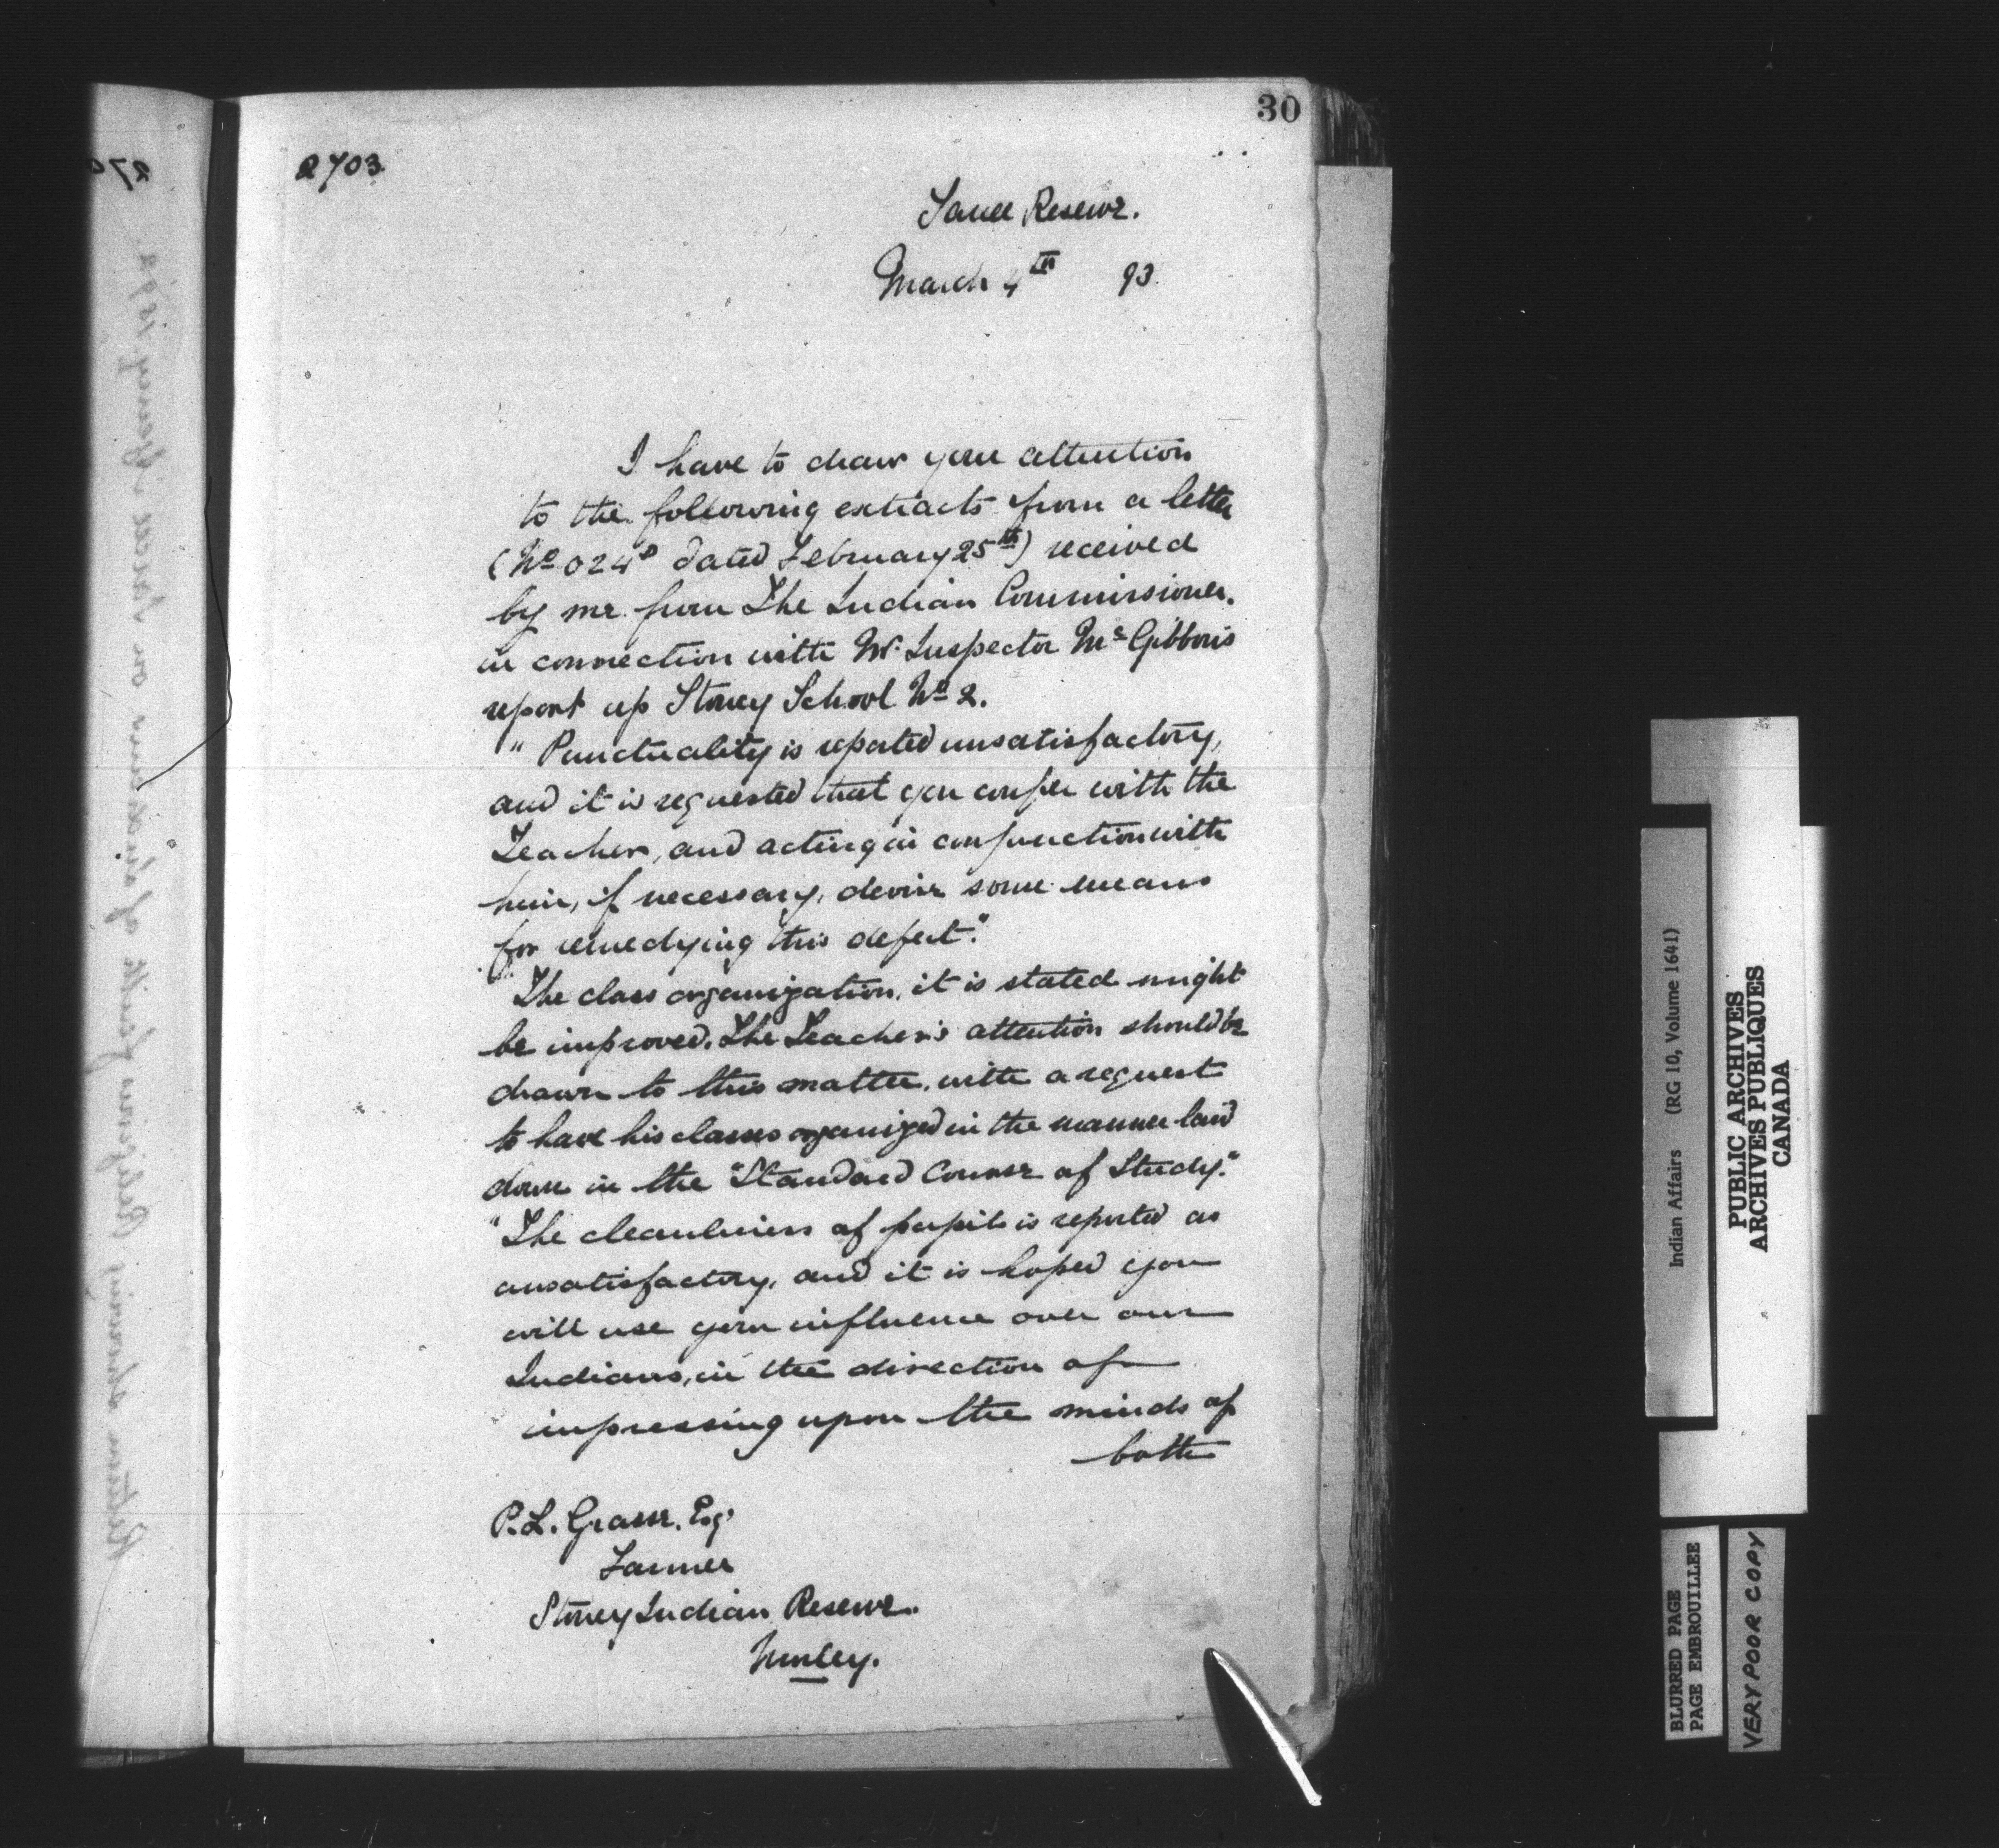 30
2703
Sarcee Reserve.
March 4th 93
I have to draw your attention
to the following extracts from a letter
(No 024 dated February 25th) received
by me from The Indian Commissioner.
in connection with Mr. Inspector McGibbons
report up Stoney School No 2.
" Punctuality is reported unsatisfactory,
and it is requested that you confer with the
Teacher, and acting in conjunction with
him, if necessary, devise some means
for remedying this defect."
"The class organization, it is stated might
be improved. The Teacher's attention should be
drawn to this matter, with a request
to have his classes organized in the manner laid
down in the "Standard Course of Study."
"The cleanliness of pupils is reported as
unsatisfactory, and it is hoped you
will use your influence over our
Indians, in the direction of
impressing upon the minds of
both
P. L. Grasse, Esq.
Farmer
Stoney Indian Reserve.
Morley.
Indian Affairs (RG 10, Volume 1641)
PUBLIC ARCHIVES
ARCHIVES PUBLIQUES
CANADA
BLURRED PAGE
PAGE EMBROUILLEE
VERY POOR COPY